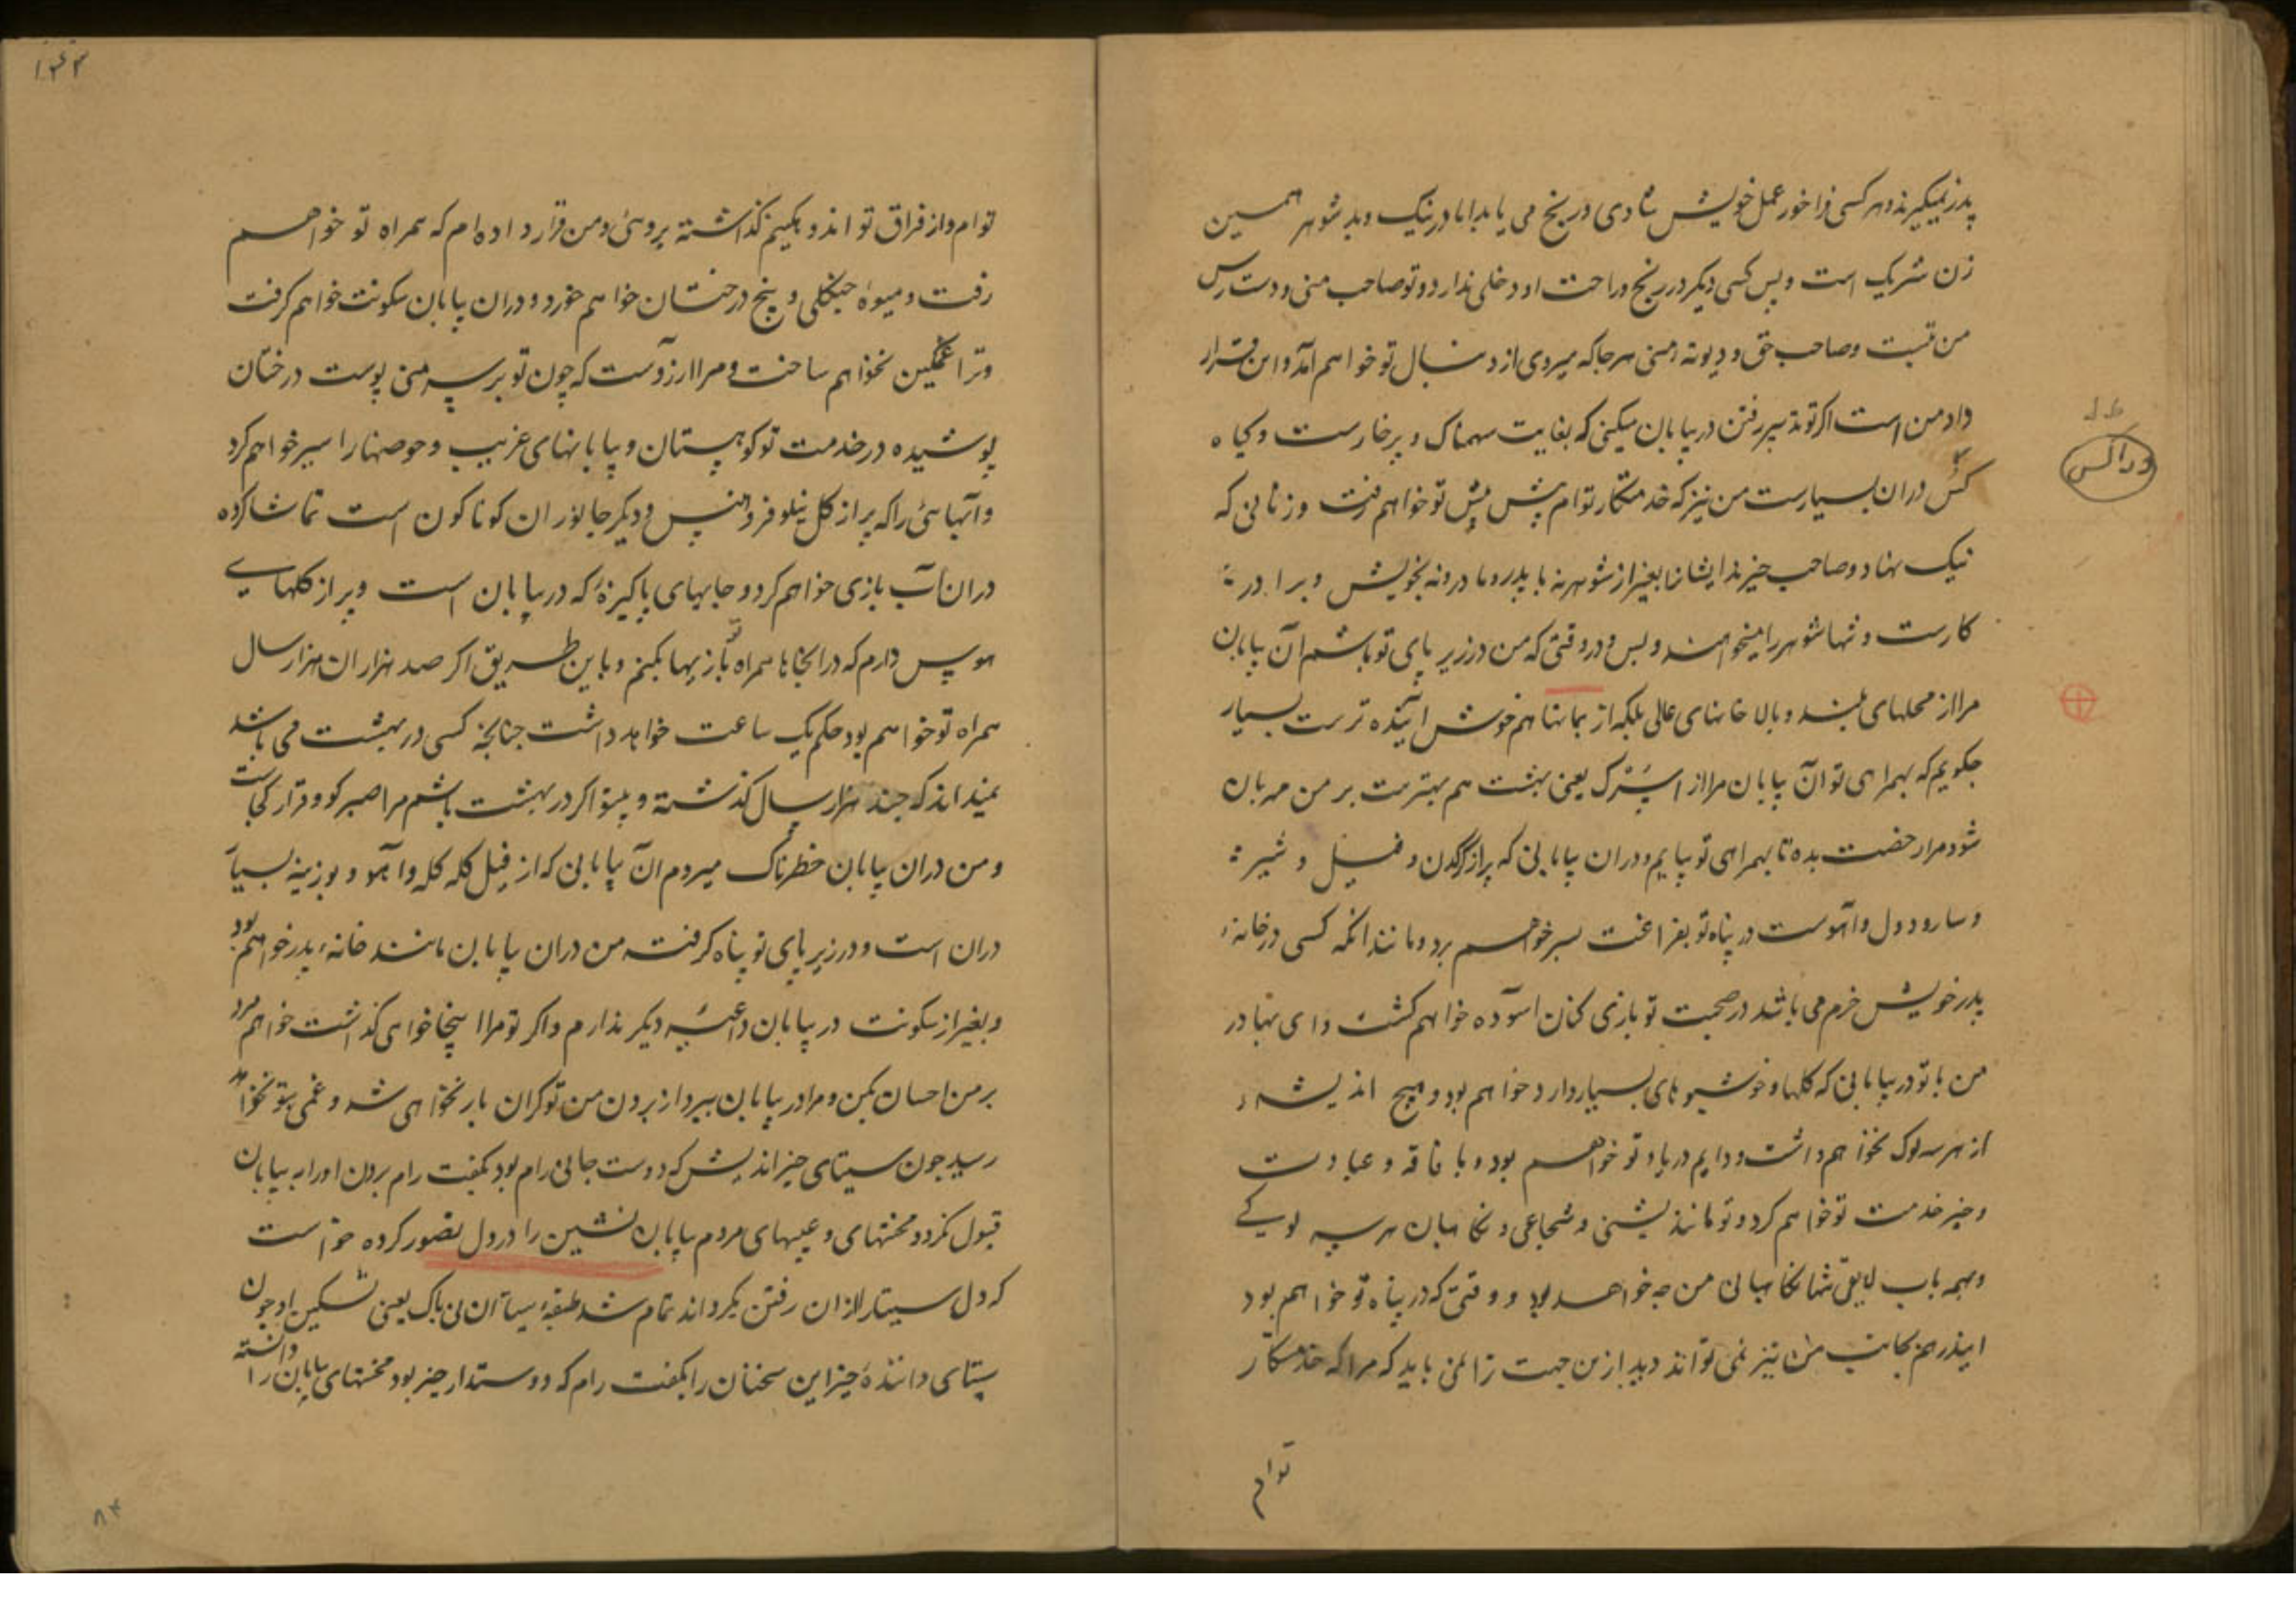 پدر نمیگیرند و هر کسی فراخور عمل خویش شادی و رنج می یابد اما در نیک و بد شوهر همین
زن شریک است و بس کسی دیگر در رنج و راحت او دخلی ندارد و تو صاحب منی و دست رس
من تست و صاحب حق و دیوته منی هر جا که میروی از دنبال تو خواهم آمد و این قرار
داد من است اگر تو تدبیر رفتن در بیابان میکنی که بغایت سهمناک و پر خارست و گیاه
کس دران بسیارست من نیز که خدمتگار توام پیش پیش تو خواهم رفت و زنانی که
نیک نهاد و صاحب خیرند ایشانرا بغیر از شوهر نه با پدر و مادر و نه بخویش و برادر
کارست و تنها شوهر را میخواهند و بس و در وقتی که من در زیر پای تو باشم آن بیابان
مرا از محلهای بلند و بالا خانهای عالی بلکه از بمانها هم خوش آینده ترست بسیار
چگویم که بهمراهی تو آن بیابان مرا از اسپرک یعنی بهشت هم بهترست بر من مهربان
شو و مرا رخصت بده تا بهمراهی تو بیایم و دران بیابانی که پر از کرگدن و فیل و شیر
و سارودول و آهوست در پناه تو بفراغت بسر خواهم برد و مانند آنکه کسی در خانهٔ
پدر خویش خرم می باشد در صحبت تو بازی کنان آسوده خواهم گشت و ای بهادر
من با تو در بیابانی که گلها و خوشبوهای بسیار دارد خواهم بود و هیچ اندیشه
از هر سه لوک نخواهم داشت و دایم در یاد تو خواهم بود و با فاقه و عبادت
و خیر خدمت تو خواهم کرد و تو مانند بشنی و شجاعی و نگاهبان هر سه لوکی
و بهمه باب لایقی شما نگاهبانی من چه خواهد بود و وقتی که در پناه تو خواهم بود
ایندر هم بجانب من نیز نمی تواند دید ازین جهت ترا می باید که مرا که خدمتگار
توام
ورالس
۱۴۳
توام و از فراق تو اندوهگینم گذاشته بروی و من قرار داده ام که همراه تو خواهم
رفت و میوهٔ جنگلی و بیخ درختان خواهم خورد و دران بیابان سکونت خواهم گرفت
و ترا غمگین نخواهم ساخت و مرا آرزوست که چون تو برسم منی پوست درختان
پوشیده در خدمت تو کوهستان و بیابانهای غریب و حوضها را سیر خواهم کرد
و آبهائی را که پر از گل نیلوفر و هنس و دیگر جانوران گوناگون است تماشا کرده
دران آب بازی خواهم کرد و جایهای پاکیزهٔ که در بیابان است و پر از گلهای
هوس دارم که در انجاها همراه تو بازیها بکنم و باین طریق اگر صد هزاران هزار سال
همراه تو خواهم بود حکم یک ساعت خواهد داشت چنانچه کسی در بهشت می باشد
نمیداند که چند هزار سال گذشته و بیتو اگر در بهشت باشم مرا صبر کو و قرار کجاست
و من دران بیابان خطرناک میروم آن بیابانی که از فیل گله گله و آهو و بوزینه بسیار
دران است و در زیر پای تو پناه گرفته من دران بیابان مانند خانهٔ پدر خواهم بود
و بغیر از سکونت در بیابان داعیه دیگر ندارم و اگر تو مرا اینجا خواهی گذاشت خواهم مرد
بر من احسان بکن و مرا در بیابان ببر و از بردن من تو گران بار نخواهی شد و غمی بتو نخواهد
رسید چون سیتای خیر اندیش که دوست جانی رام بود بگفت رام بردن او را به بیابان
قبول نکرد و محنتهای و عیبهای مردم بیابان نشین را در دل تصور کرده خواست
که دل سیتا را از ان رفتن بگرداند تمام شد طبقهٔ سیتا آن بی باک یعنی تسکین او چون
سیتای دانندهٔ خیر این سخنان را بگفت رام که دوستدار خیر بود محنتهای بیابان را دانسته
۸۴